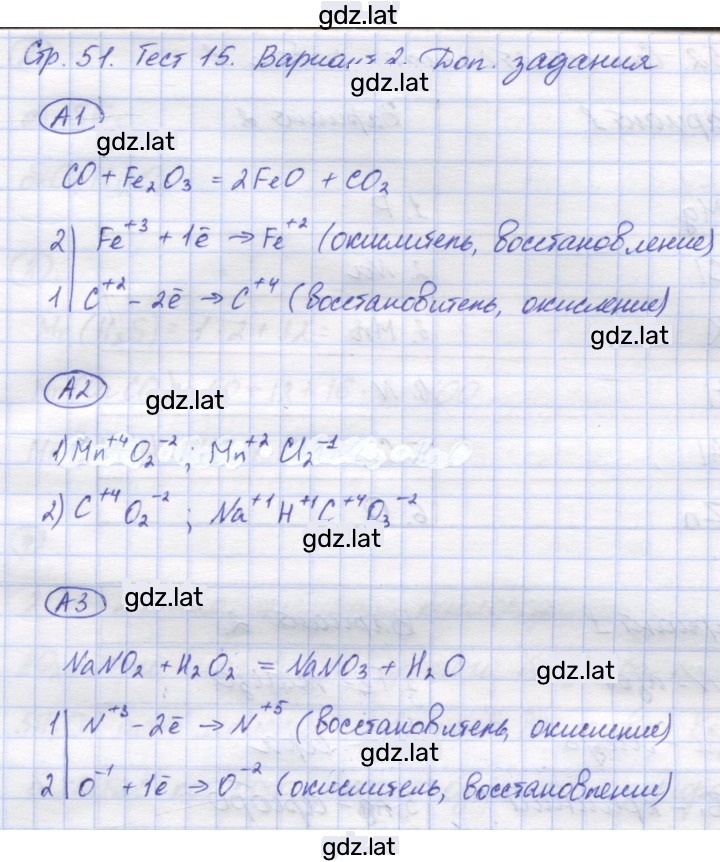 gdz.lat
Стр. 51. Тест 15. Вариант 2. Доп. задания
gdz.lat
A1
gdz.lat
CO + Fe₂O₃ = 2FeO + CO₂
2| Fe⁺³ + 1ē → Fe⁺² (окислитель, восстановление)
1| C⁺² - 2ē → C⁺⁴ (восстановитель, окисление)
gdz.lat
A2
gdz.lat
1) Mn⁺⁴O₂⁻² ; Mn⁺² Cl₂⁻¹
2) C⁺⁴O₂⁻² ; Na⁺¹H⁺¹C⁺⁴O₃⁻²
gdz.lat
A3
gdz.lat
NaNO₂ + H₂O₂ = NaNO₃ + H₂O
gdz.lat
1| N⁺³ - 2ē → N⁺⁵ (восстановитель, окисление)
gdz.lat
2| O⁻¹ + 1ē → O⁻² (окислитель, восстановление)
gdz.lat